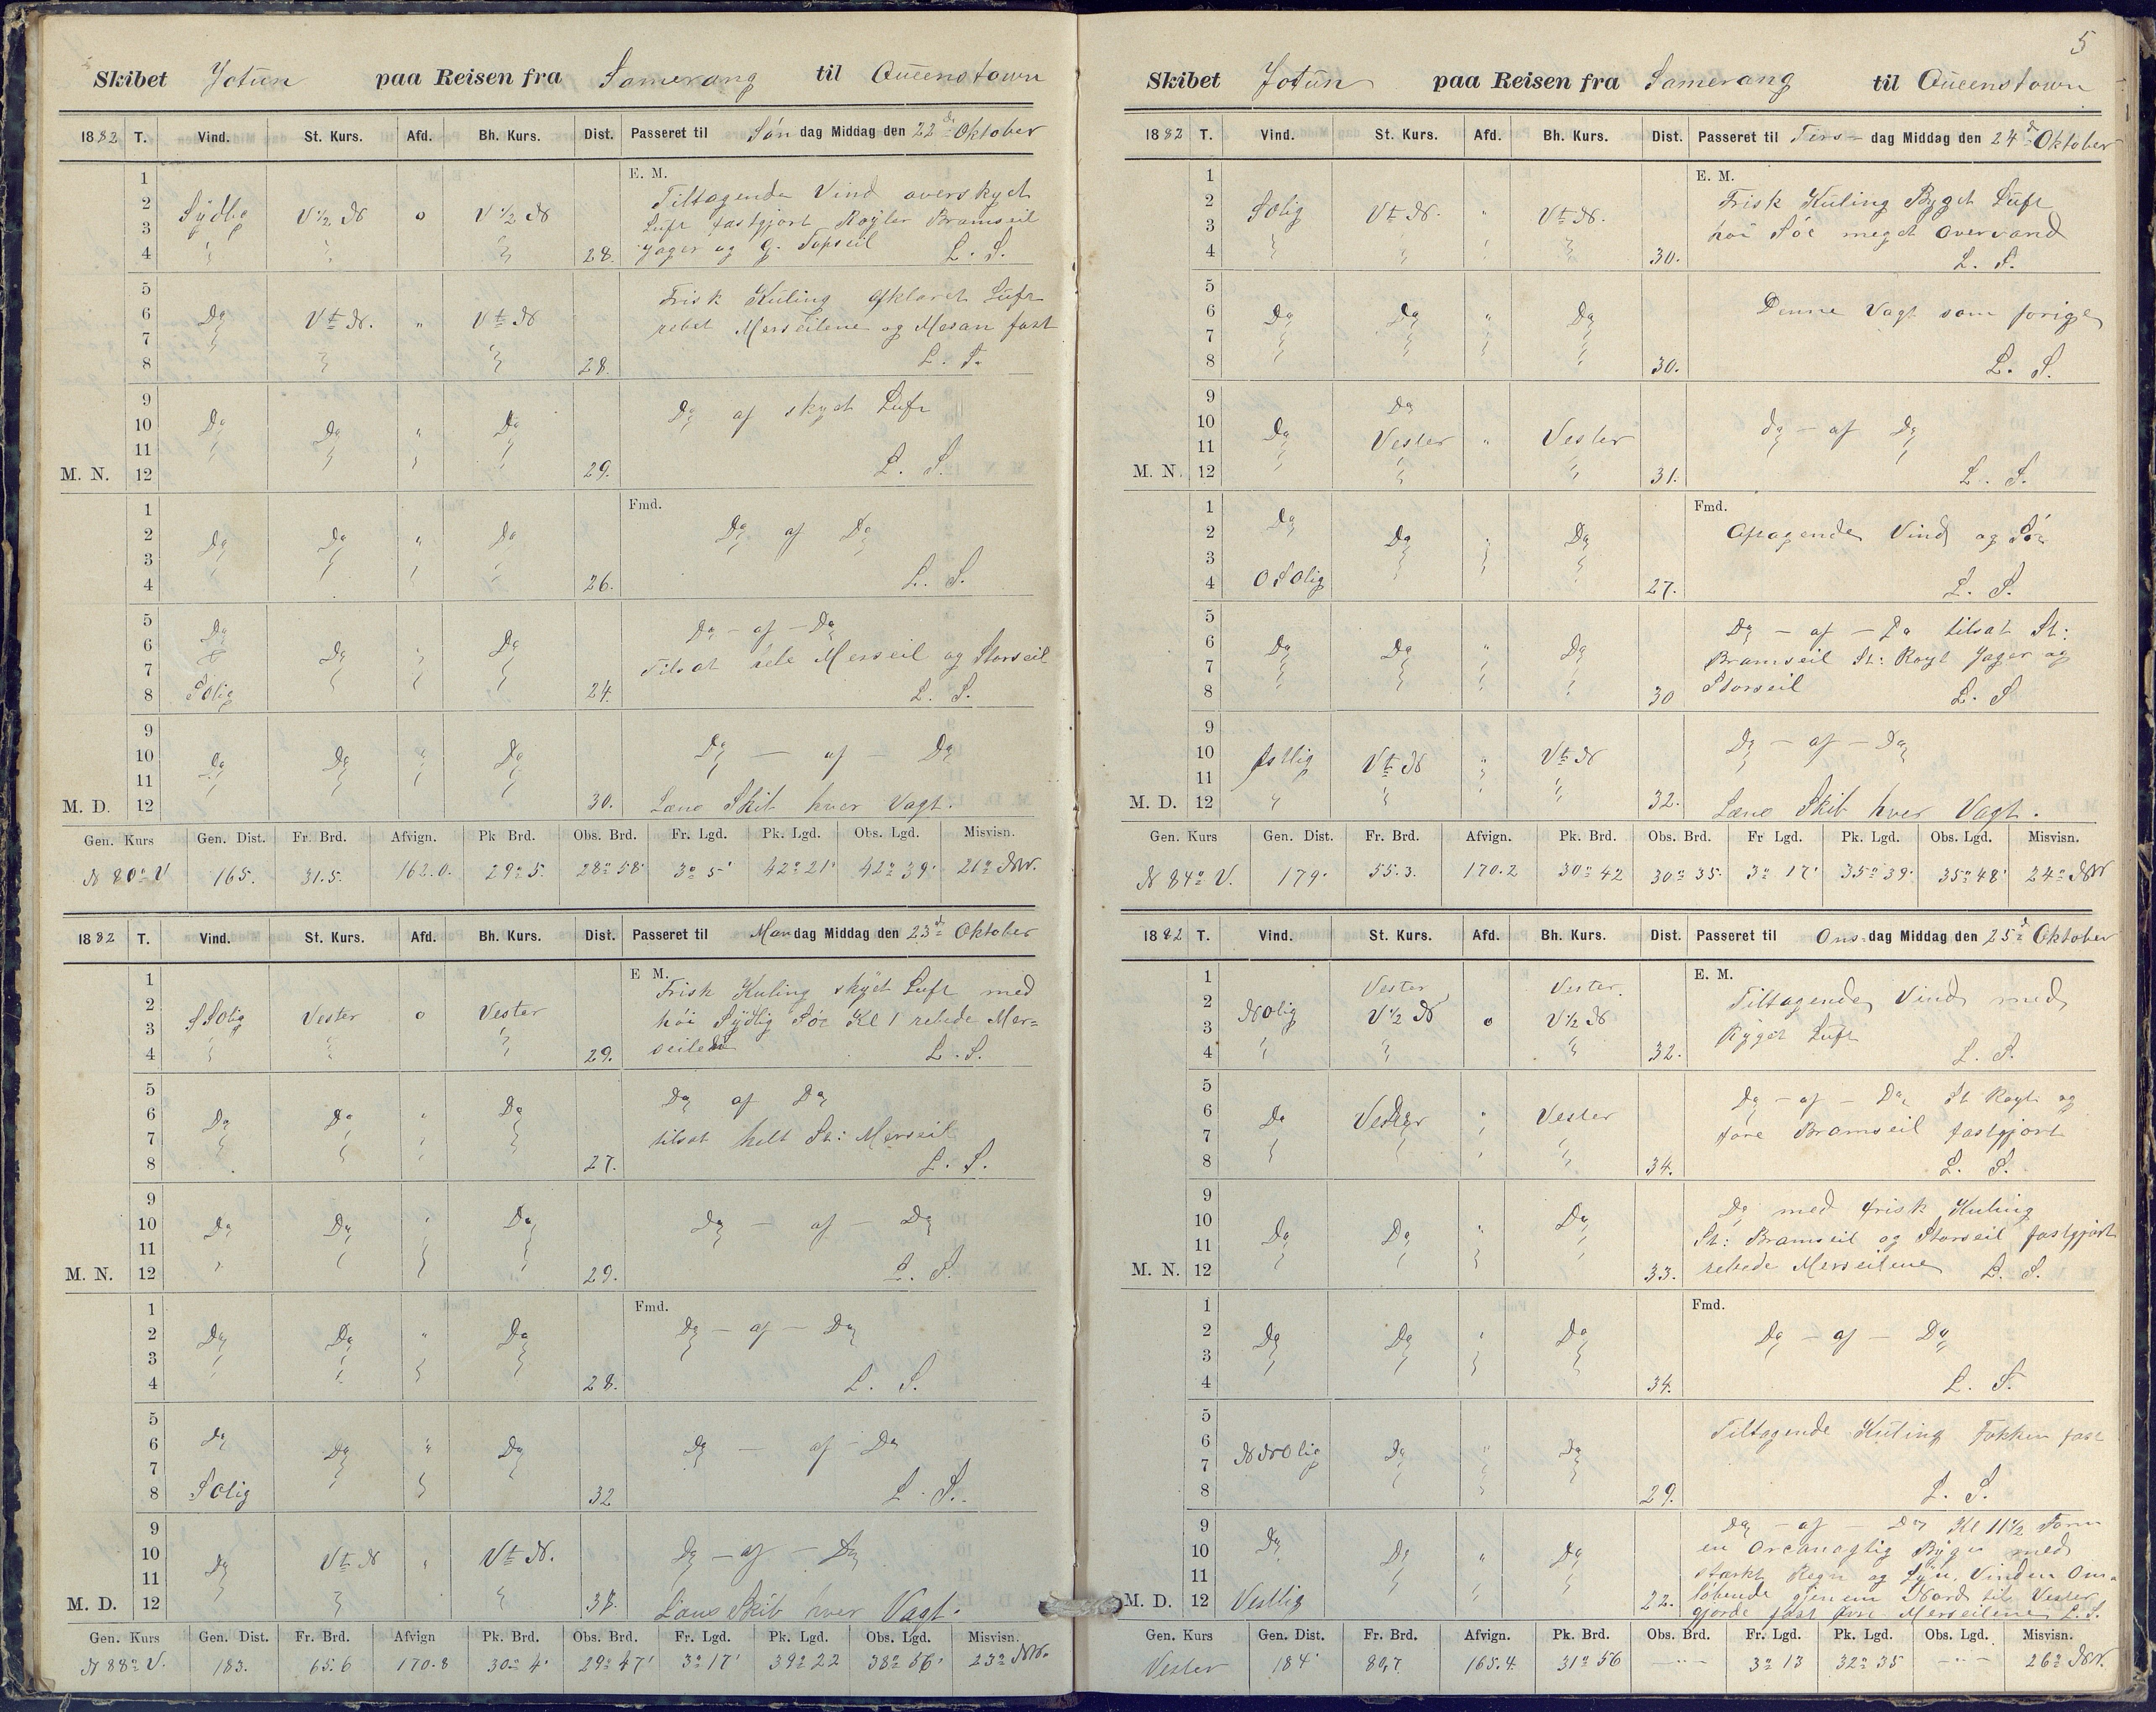 Skibet Jotun paa Reisen fra Samerang til Queenstown
1882 T. Vind. St. Kurs. Afd. Bh. Kurs. Dist. Passeret til Søn dag Middag den 22de Oktober
E. M.
1
2
3
4
Sydlig V 1/2 N o V 1/2 N 28.
Tiltagende Vind overskyet
Luft fastgjort Røyler Bramseil
Jager og G. Topseil L. S.
5
6
7
8
Do V t N. " V t N 28.
Frisk Kuling afklaret Luft
rebet Merseilene og Mesan fast
L. S.
9
10
11
M. N. 12
Do Do " Do 29.
Do af skyet Luft
L. S.
Fmd.
1
2
3
4
Do Do " Do 26.
Do af Do
L. S.
5
6
7
8
Do Do " Do
SOlig 24.
Do - af - Do
Tilsat hele Merseil og Storseil
L. S.
9
10
11
M. D. 12
Do Do " Do 30.
Do - af - Do
Læns Skib hver Vagt.
Gen. Kurs Gen. Dist. Fr. Brd. Afvign. Pk Brd. Obs. Brd. Fr. Lgd. Pk. Lgd. Obs. Lgd. Misvisn.
N 80° V 165. 31.5. 162.0. 29° 5. 28° 58' 3° 5' 42° 21' 42° 39' 21° NW.
1882 T. Vind. St. Kurs. Afd. Bh. Kurs. Dist. Passeret til Mandag Middag den 23d Oktober
E M.
1
2
3
4
SSOlig Vester o Vester 29.
Frisk Kuling skyet Luft med
høi Sydlig Søe Kl 1 rebede Mer=
seilene L. S.
5
6
7
8
Do Do " Do 27.
Do af Do
tilsat helt St: Merseil
L. S.
9
10
11
M. N. 12
Do Do " Do 29.
Do - af - Do
L. S.
Fmd.
1
2
3
4
Do Do " Do 28.
Do - af - Do
L. S.
5
6
7
8
Do Do " Do
SOlig 32
Do - af - Do
L. S.
9
10
11
M. D. 12
Do V t N " V t N. 38.
Do - af - Do
Læns Skib hver Vagt.
Gen. Kurs Gen. Dist. Fr. Brd. Afvign Pk. Brd. Obs. Brd. Fr. Lgd. Pk. Lgd. Obs. Lgd. Misvisn.
N 88° V. 183. 65.6 170.8 30° 4' 29° 47' 3° 17' 39° 22 38° 56' 23° NW.
5
Skibet Jotun paa Reisen fra Samerang til Queenstown
1882 T. Vind. St. Kurs. Afd. Bh. Kurs. Dist. Passeret til Tirs- dag Middag den 24d Oktober
E. M.
1
2
3
4
SOlig V t N. " V t N. 30.
Frisk Kuling Byget Luft
høi Søe meget Overvand
L. S.
5
6
7
8
Do Do " Do 30.
Denne Vagt som forige
L. S.
9
10
11
M. N. 12
Do
Do Vester " Vester 31.
do - af Do
L. S.
Fmd.
1
2
3
4
Do Do " Do
OSOlig 27.
Aftagende Vind og Søe
L. S.
5
6
7
8
Do Do " Do 30
Do - af - Do tilsat St:
Bramseil St: Røyl Jager og
Storseil L. S.
9
10
11
M. D. 12
Østlig V t N " V t N 32.
Do - af - Do
Læns Skib hver Vagt.
Gen. Kurs Gen. Dist. Fr. Brd. Afvign. Pk. Brd. Obs. Brd. Fr Lgd. Pk. Lgd. Obs. Lgd. Misvisn.
N 84° V. 179. 55.3. 170.2 30° 42 30° 35. 3° 17' 35° 39' 35° 48' 24° NW
1882 T. Vind. St. Kurs. Afd. Bh. Kurs. Dist. Passeret til Ons- dag Middag den 25d Oktober
E. M.
1
2
3
4
Vester Vester
NOlig V 1/2 N o V 1/2 N 32.
Tiltagende Vind med
Byget Luft
L. S.
5
6
7
8
Do Vester " Vester 34.
Do - af - Do St Røyl og
fore Bramseil fastgjort
L. S.
9
10
11
M. N. 12
Do Do " Do 33.
Do med frisk Kuling
St: Bramseil og Storseil fastgjort
rebede Merseilene L. S.
Fmd.
1
2
3
4
Do Do " Do 34.
Do - af - Do
L. S.
5
6
7
8
NNOlig Do " Do 29.
Tiltagende Kuling Fokken fast
L. S.
9
10
11
M. D. 12
Do Do " Do
Vestlig 22.
Do - af - Do Kl 11 1/2
en Orcanagtig Byge med
stærkt Regn og Lyn, Vinden Om=
løbende gjenem Nord til Vester
gjorde fast fore Merseilene L. S.
Gen. Kurs Gen. Dist. Fr. Brd. Afvign. Pk. Brd. Obs. Brd. Fr. Lgd. Pk. Lgd. Obs. Lgd. Misvisn.
Vester 184' 80,7 165.4 31° 56 -"- 3° 13 32° 35 -"- 26° NW.